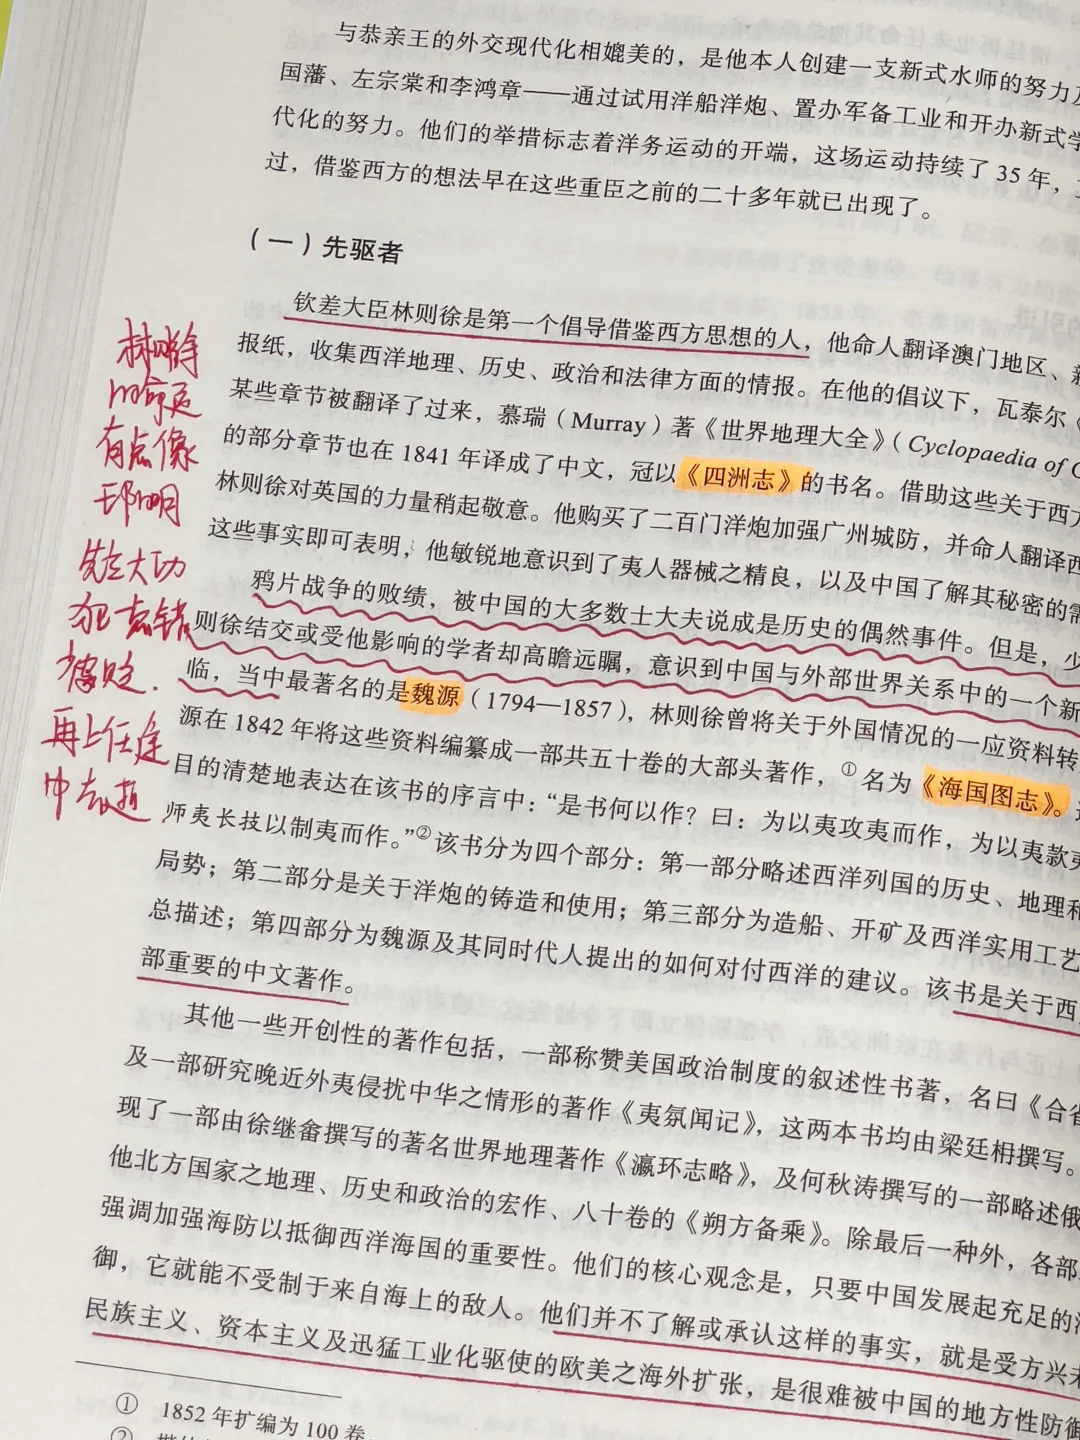 与恭亲王的外交现代化相媲美的，是他本人创建一支新式水师的努力及
国藩、左宗棠和李鸿章——通过试用洋船洋炮、置办军备工业和开办新式学
代化的努力。他们的举措标志着洋务运动的开端，这场运动持续了 35 年，
过，借鉴西方的想法早在这些重臣之前的二十多年就已出现了。
（一）先驱者
钦差大臣林则徐是第一个倡导借鉴西方思想的人，他命人翻译澳门地区、新
报纸，收集西洋地理、历史、政治和法律方面的情报。在他的倡议下，瓦泰尔《
某些章节被翻译了过来，慕瑞（Murray）著《世界地理大全》（Cyclopaedia of G
的部分章节也在 1841 年译成了中文，冠以《四洲志》的书名。借助这些关于西方
林则徐对英国的力量稍起敬意。他购买了二百门洋炮加强广州城防，并命人翻译西
这些事实即可表明，他敏锐地意识到了夷人器械之精良，以及中国了解其秘密的需
鸦片战争的败绩，被中国的大多数士大夫说成是历史的偶然事件。但是，少
则徐结交或受他影响的学者却高瞻远瞩，意识到中国与外部世界关系中的一个新
临，当中最著名的是魏源（1794—1857），林则徐曾将关于外国情况的一应资料转
源在 1842 年将这些资料编纂成一部共五十卷的大部头著作，①名为《海国图志》。
目的清楚地表达在该书的序言中：“是书何以作？曰：为以夷攻夷而作，为以夷款夷
师夷长技以制夷而作。”②该书分为四个部分：第一部分略述西洋列国的历史、地理和
局势；第二部分是关于洋炮的铸造和使用；第三部分为造船、开矿及西洋实用工艺
总描述；第四部分为魏源及其同时代人提出的如何对付西洋的建议。该书是关于西
部重要的中文著作。
其他一些开创性的著作包括，一部称赞美国政治制度的叙述性书著，名曰《合省
及一部研究晚近外夷侵扰中华之情形的著作《夷氛闻记》，这两本书均由梁廷枏撰写。
现了一部由徐继畬撰写的著名世界地理著作《瀛环志略》，及何秋涛撰写的一部略述俄
他北方国家之地理、历史和政治的宏作、八十卷的《朔方备乘》。除最后一种外，各部
强调加强海防以抵御西洋海国的重要性。他们的核心观念是，只要中国发展起充足的海
御，它就能不受制于来自海上的敌人。他们并不了解或承认这样的事实，就是受方兴未
民族主义、资本主义及迅猛工业化驱使的欧美之海外扩张，是很难被中国的地方性防御
① 1852 年扩编为 100 卷。
②
林则徐
的命运
有点像
王阳明
先立大功
犯点错
被贬.
再上任途
中去逝